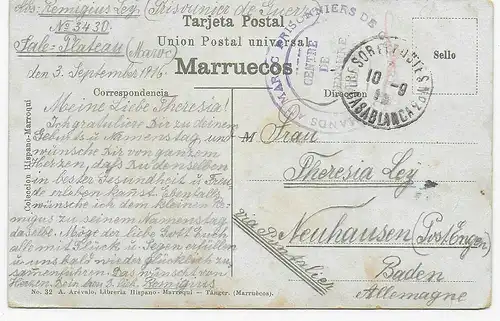 Abs: Remigius Ley (Prisonnier de Guerre)
No 3430
Sale-Plateau (Maroc)
Tarjeta Postal
Union Postal universal
Marruecos
Sello
den 3. September 1916.
Correspondencia
Direccion
MAROC PRISONNIERS DE
CENTRE
DE
TRESOR ET POSTES No
10-9
CASABLANCA
Meine Liebe Theresia!
Ich gratuliere Dir zu deinem
Geburts u. Namenstag, und
wünsche Dir von ganzem
Herzen, daß Du denselben
in bester Gesundheit u. Freu
de erleben kannst. Ebenfalls
wünsche ich dem kleinen Re
migius zu seinem Namenstag
dasselbe. Möge der liebe Gott Euch
alle mit Glück u. Segen erfüllen
u uns bald wieder glücklich zu
samenführen. Das wünscht von
Herzen Remigius
M Frau
Theresia Ley
Neuhausen (Post Engen)
Baden
Allemagne
via Pontarlier
Coleccion Hispano-Marroqui
No. 32 A. Arévalo, Libreria Hispano-Marroqui - Tánger. (Marruecos).